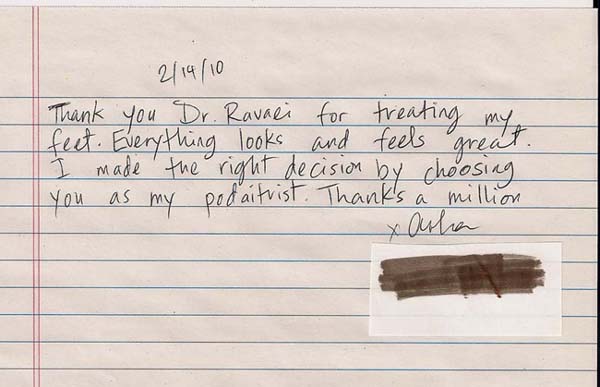 2/14/10
Thank you Dr. Ravaei for treating my
feet. Everything looks and feels great.
I made the right decision by choosing
you as my podaitrist. Thanks a million
x